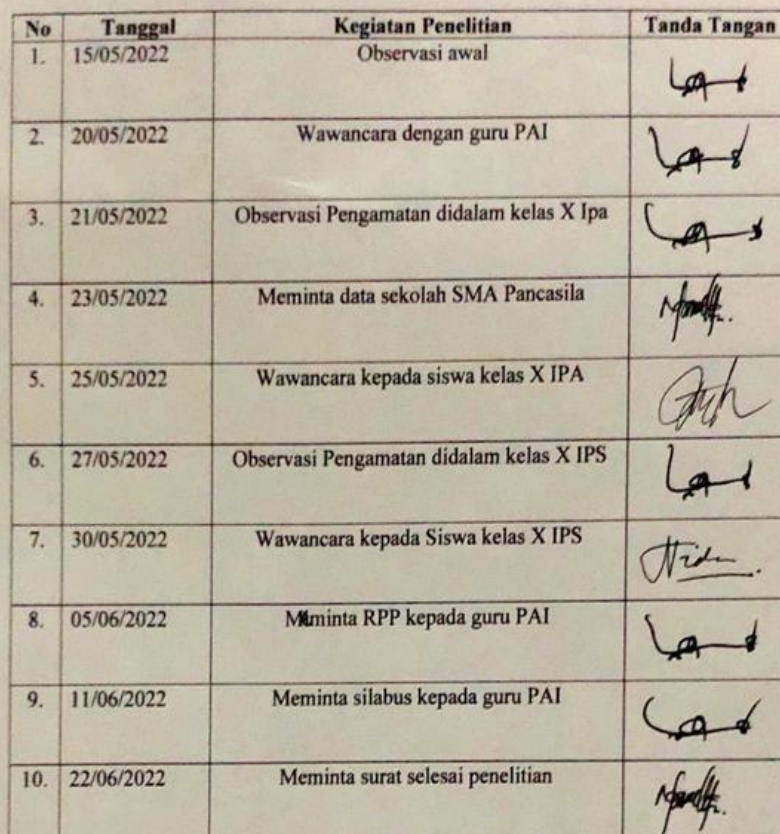 No Tanggal Kegiatan Penelitian Tanda Tangan
1. 15/05/2022 Observasi awal
2. 20/05/2022 Wawancara dengan guru PAI
3. 21/05/2022 Observasi Pengamatan didalam kelas X Ipa
4. 23/05/2022 Meminta data sekolah SMA Pancasila
5. 25/05/2022 Wawancara kepada siswa kelas X IPA
6. 27/05/2022 Observasi Pengamatan didalam kelas X IPS
7. 30/05/2022 Wawancara kepada Siswa kelas X IPS
8. 05/06/2022 Meminta RPP kepada guru PAI
9. 11/06/2022 Meminta silabus kepada guru PAI
10. 22/06/2022 Meminta surat selesai penelitian